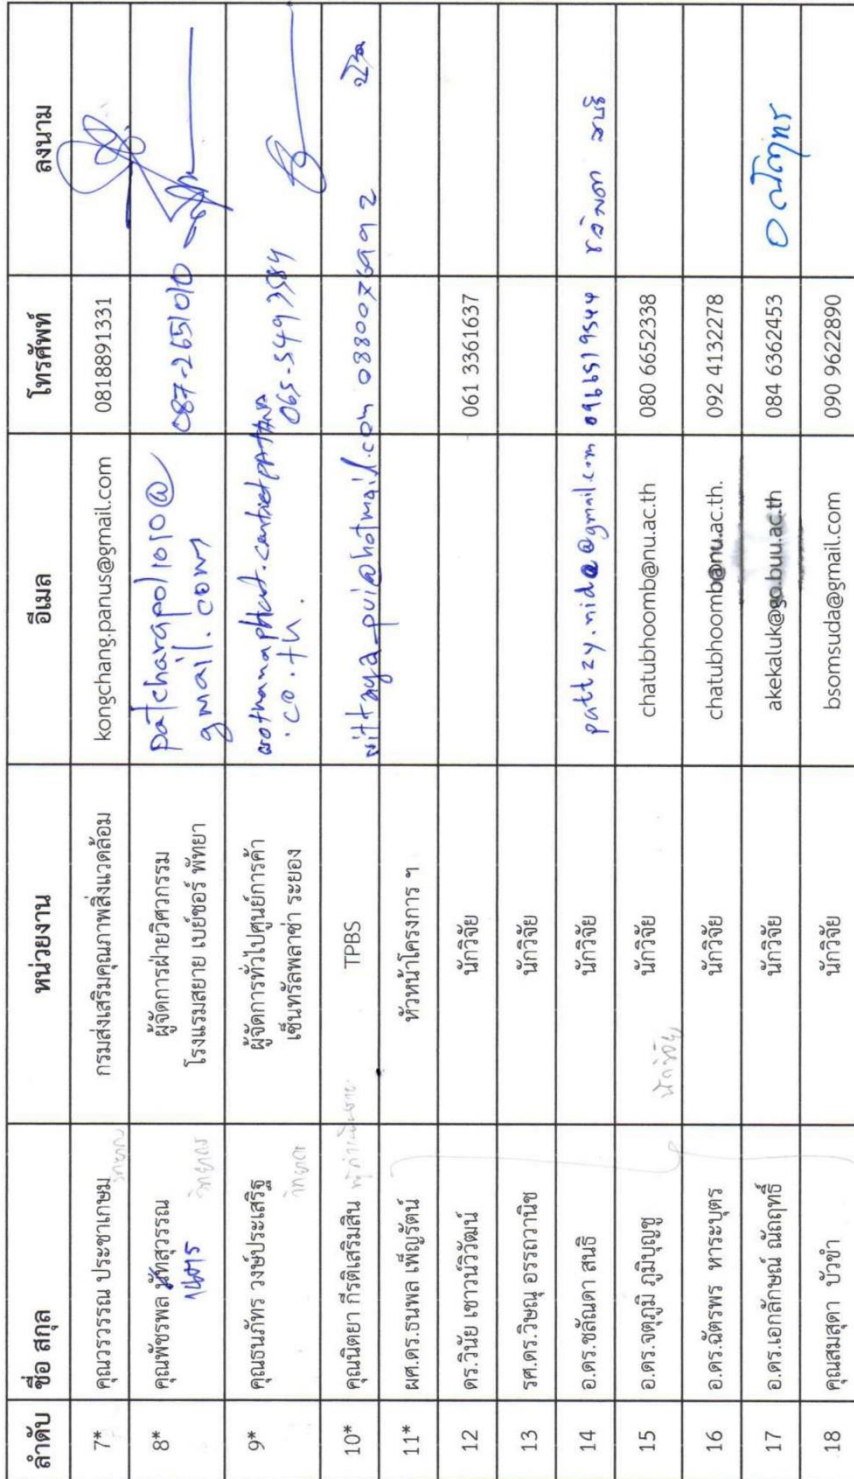 ลำดับ ชื่อ สกุล หน่วยงาน อีเมล โทรศัพท์ ลงนาม
7* คุณวรวรรณ ประชาเกษม กรมส่งเสริมคุณภาพสิ่งแวดล้อม kongchang.panus@gmail.com 0818891331
วิทยากร
8* คุณพัชรพล นัทสุวรรณ ผู้จัดการฝ่ายวิศวกรรม patcharapol1010@ 087-2651010
วิทยากร โรงแรมสยาย เบย์ชอร์ พัทยา gmail.com
9* คุณธนภัทร วงษ์ประเสริฐ ผู้จัดการทั่วไปศูนย์การค้า
วิทยากร เซ็นทรัลพลาซ่า ระยอง .co.th. 065-5497584
10* คุณนิตยา กีรติเสริมสิน ผู้ดำเนินรายการ TPBS vittaya_pui@hotmail.com 0880076992
11* ผศ.ดร.ธนพล เพ็ญรัตน์ หัวหน้าโครงการ ฯ
12 ดร.วินัย เชาวน์วิวัฒน์ นักวิจัย 061 3361637
13 รศ.ดร.วิษณุ อรรถวานิช นักวิจัย
14 อ.ดร.ชลัณดา สนธิ นักวิจัย pattzy.nida@gmail.com 0966519544 ชลัณดา สนธิ
15 อ.ดร.จตุภูมิ ภูมิบุญชู นักวิจัย chatubhoomb@nu.ac.th 080 6652338
นักวิจัย
16 อ.ดร.ฉัตรพร หาระบุตร นักวิจัย chatubhoomb@nu.ac.th. 092 4132278
17 อ.ดร.เอกลักษณ์ ณัถฤทธิ์ นักวิจัย akekaluk@go.buu.ac.th 084 6362453
18 คุณสมสุดา บัวขำ นักวิจัย bsomsuda@gmail.com 090 9622890